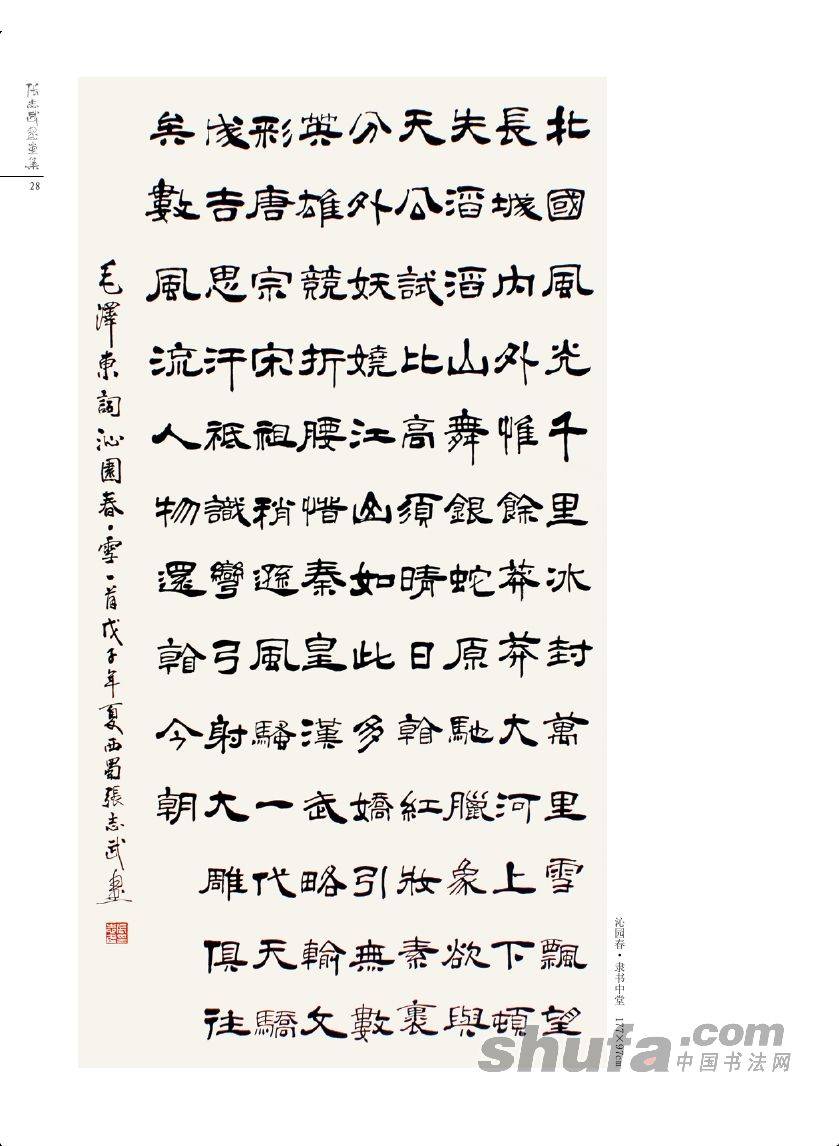 张志武书画集
28
北國風光千里冰封萬里雪飄望
長城内外惟餘莽莽大河上下頓
失滔滔山舞銀蛇原馳臘象欲與
天公試比高須晴日看紅妝素裹
分外妖嬈江山如此多嬌引無數
英雄競折腰惜秦皇漢武略輸文
彩唐宗宋祖稍遜風騷一代天驕
成吉思汗祗識彎弓射大雕俱往
矣數風流人物還看今朝
毛澤東詞沁園春·雪一首戊子年夏西蜀張志武書
沁园春·隶书中堂 177×97cm
shufa.com
中国书法网